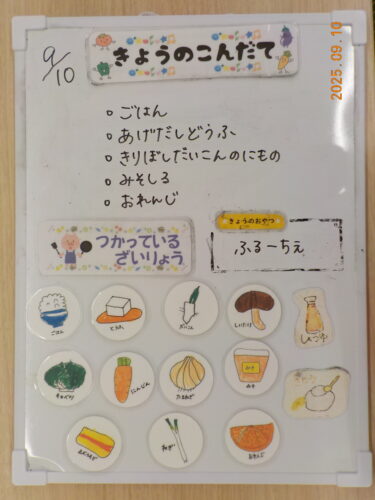 9/10
きょうのこんだて
2025.09.10
ごはん
あげだしどうふ
きりぼしだいこんのにもの
みそしる
おれんじ
つかっている
ざいりょう
きょうのおやつ
ふるーちぇ
ごはん
とうふ
だいこん
しいたけ
しょうゆ
キャベツ
にんじん
たまねぎ
みそ
みそ
あぶらあげ
ねぎ
おれんじ